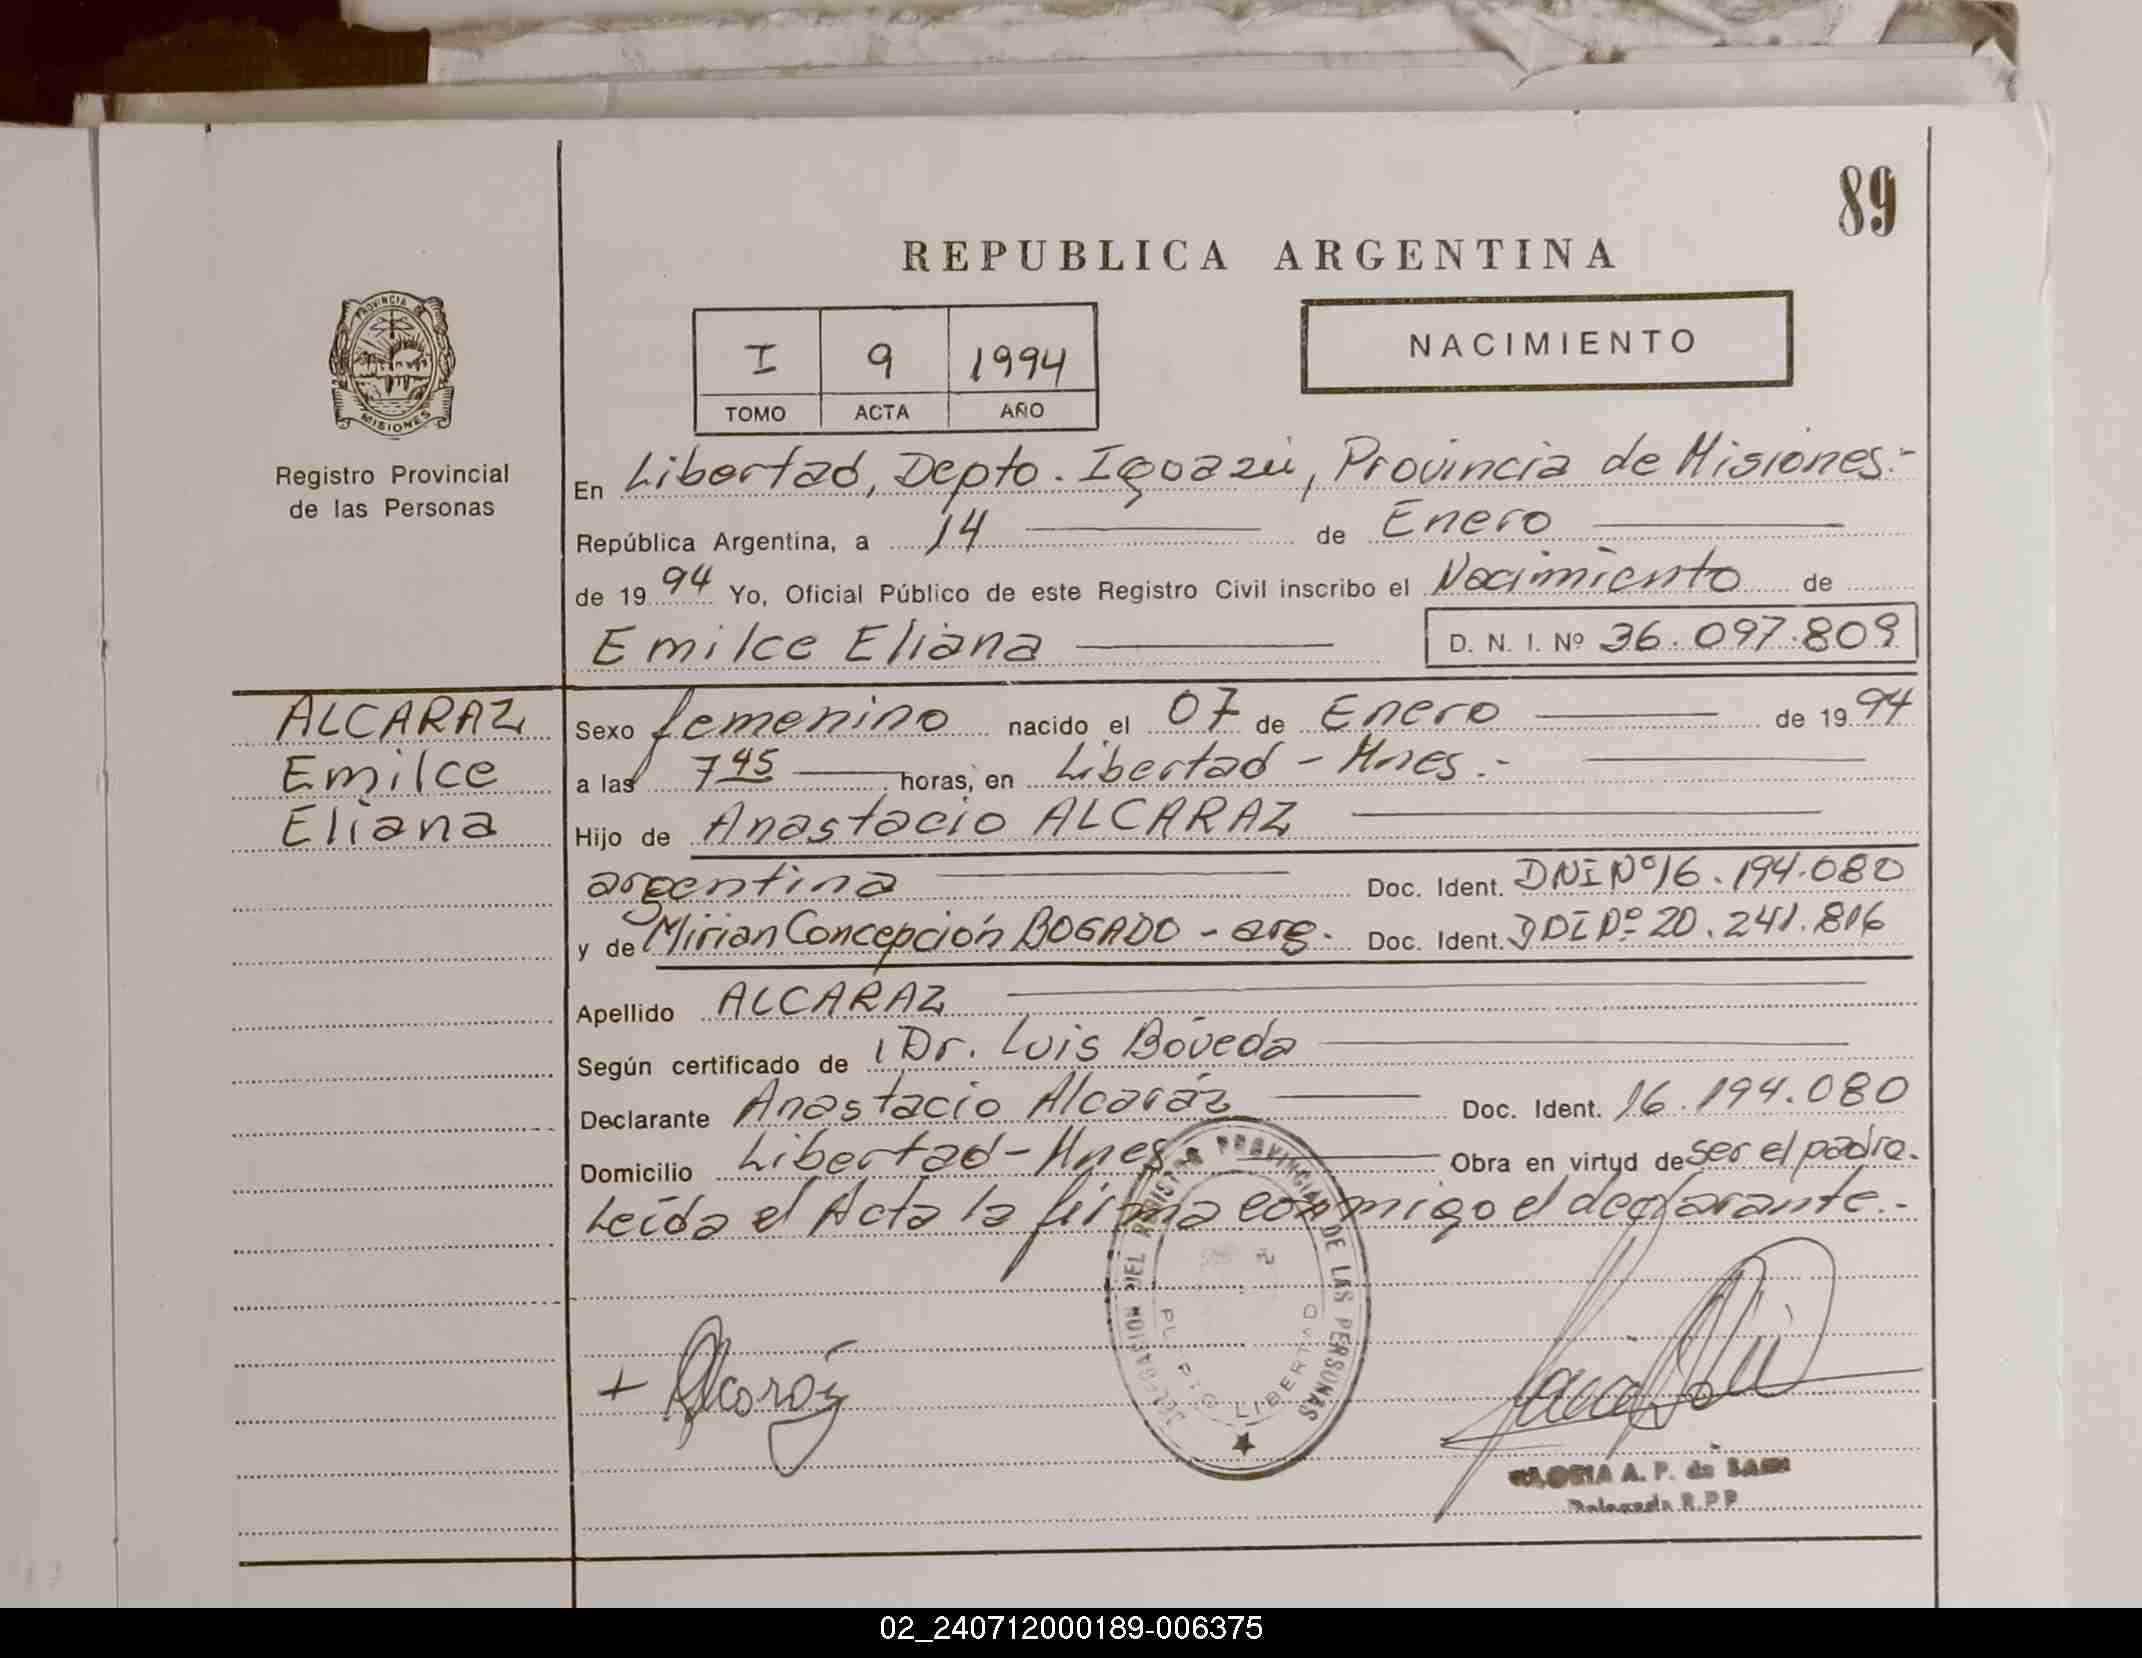 89
REPUBLICA ARGENTINA
PROVINCIA DE
MISIONES
Registro Provincial
de las Personas
I 9 1994
TOMO ACTA AÑO
NACIMIENTO
En Libertad, Depto. Iguazú, Provincia de Misiones.-
República Argentina, a 14 de Enero
de 1994 Yo, Oficial Público de este Registro Civil inscribo el Nacimiento de
Emilce Eliana D. N. I. Nº 36.097.809
ALCARAZ
Emilce
Eliana
Sexo femenino nacido el 07 de Enero de 1994
a las 7 45 horas, en Libertad - Mnes.-
Hijo de Anastacio ALCARAZ
argentina Doc. Ident. DNI Nº 16.194.080
y de Mirian Concepción BOGADO - arg. Doc. Ident. DNI Nº 20.241.816
Apellido ALCARAZ
Según certificado de Dr. Luis Bóveda
Declarante Anastacio Alcaráz Doc. Ident. 16.194.080
Domicilio Libertad - Mnes. Obra en virtud de ser el padre.
Leída el Acta la firma conmigo el declarante.-
DELEGACION DEL REGISTRO PROVINCIAL DE LAS PERSONAS
LIBERTAD
+ Alcaráz
A. P. de
R.P.P
02_240712000189-006375